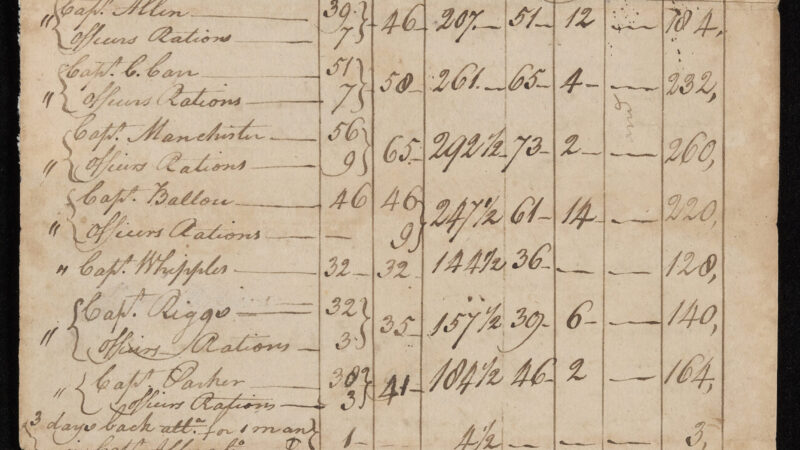 " Capt. Allen — 39 — 46 — 207 — 51 — 12 — 184,
Officers Rations — 7
" Capt. C. Carr — 51 — 58 — 261 — 65 — 4 — 232,
Officers Rations — 7
" Capt. Manchester — 56 — 65 — 292 1/2 — 73 — 2 — 260,
Officers Rations — 9
" Capt. Ballou — 46 46 247 1/2 61 — 14 — 220,
Officers Rations — 9
" Capt. Whipples — 32 — 32 — 144 1/2 36 — — — 128,
" Capt. Riggs — 32 — 35 — 157 1/2 39 — 6 — 140,
Officers Rations — 3
" Capt. Parker — 38 — 41 — 184 1/2 46 — 2 — 164,
Officers Rations — 3
3 days back for 1 man 1 — — 4 1/2 — — — 3,